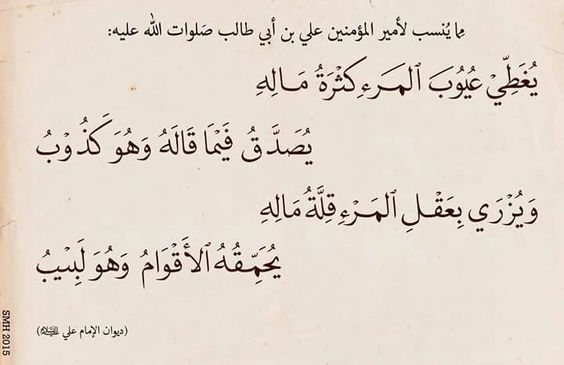 مما يُنسب لأمير المؤمنين علي بن أبي طالب صَلوات الله عليه:
يُغَطِّيْ عُيُوبَ الْمَرءِ كَثْرَةُ مَالِهِ
يُصَدَّقُ فَيْمَا قَالَهُ وَهُوَ كَذُوْبُ
وَيُزْرَي بِعَقْلِ الْمَرْءِ قِلَّةُ مَالِهِ
يُحَمِّقُهُ الأَقْوَامُ وَهُوَ لَبِيْبُ
(ديوان الإمام علي ﷺ)
SMH 2015